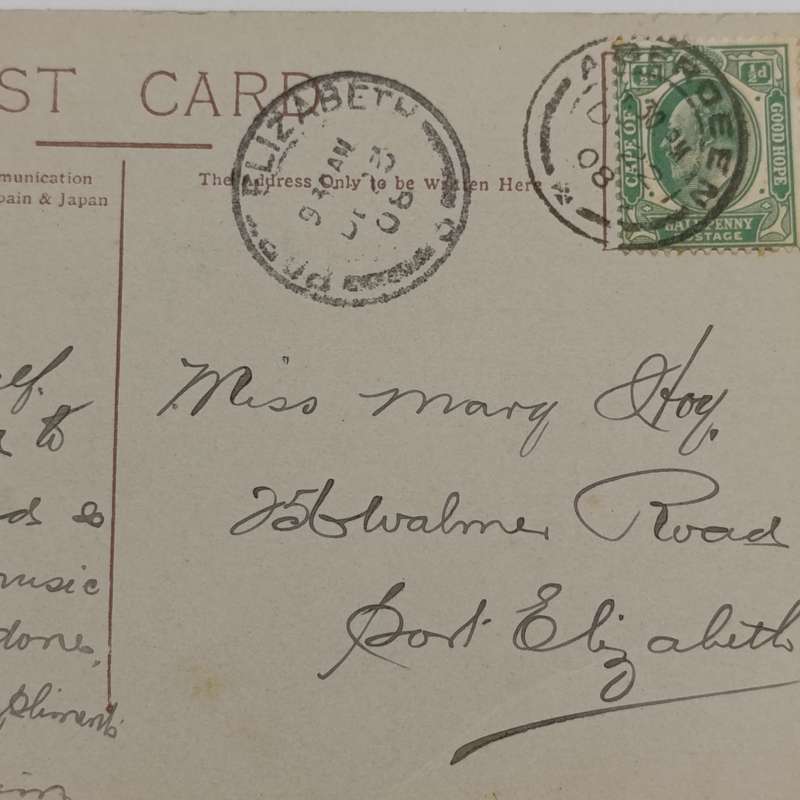 ST CARD
munication
pain & Japan
The Address Only to be Written Here
ELIZABETH
9 30 AM
DE
08
ABERDEEN
08
½d
CAPE OF
GOOD HOPE
HALFPENNY
POSTAGE
Miss Mary Hoy.
256 Walmer Road
Port Elizabeth
elf.
to
ds so
music
dones,
pliments